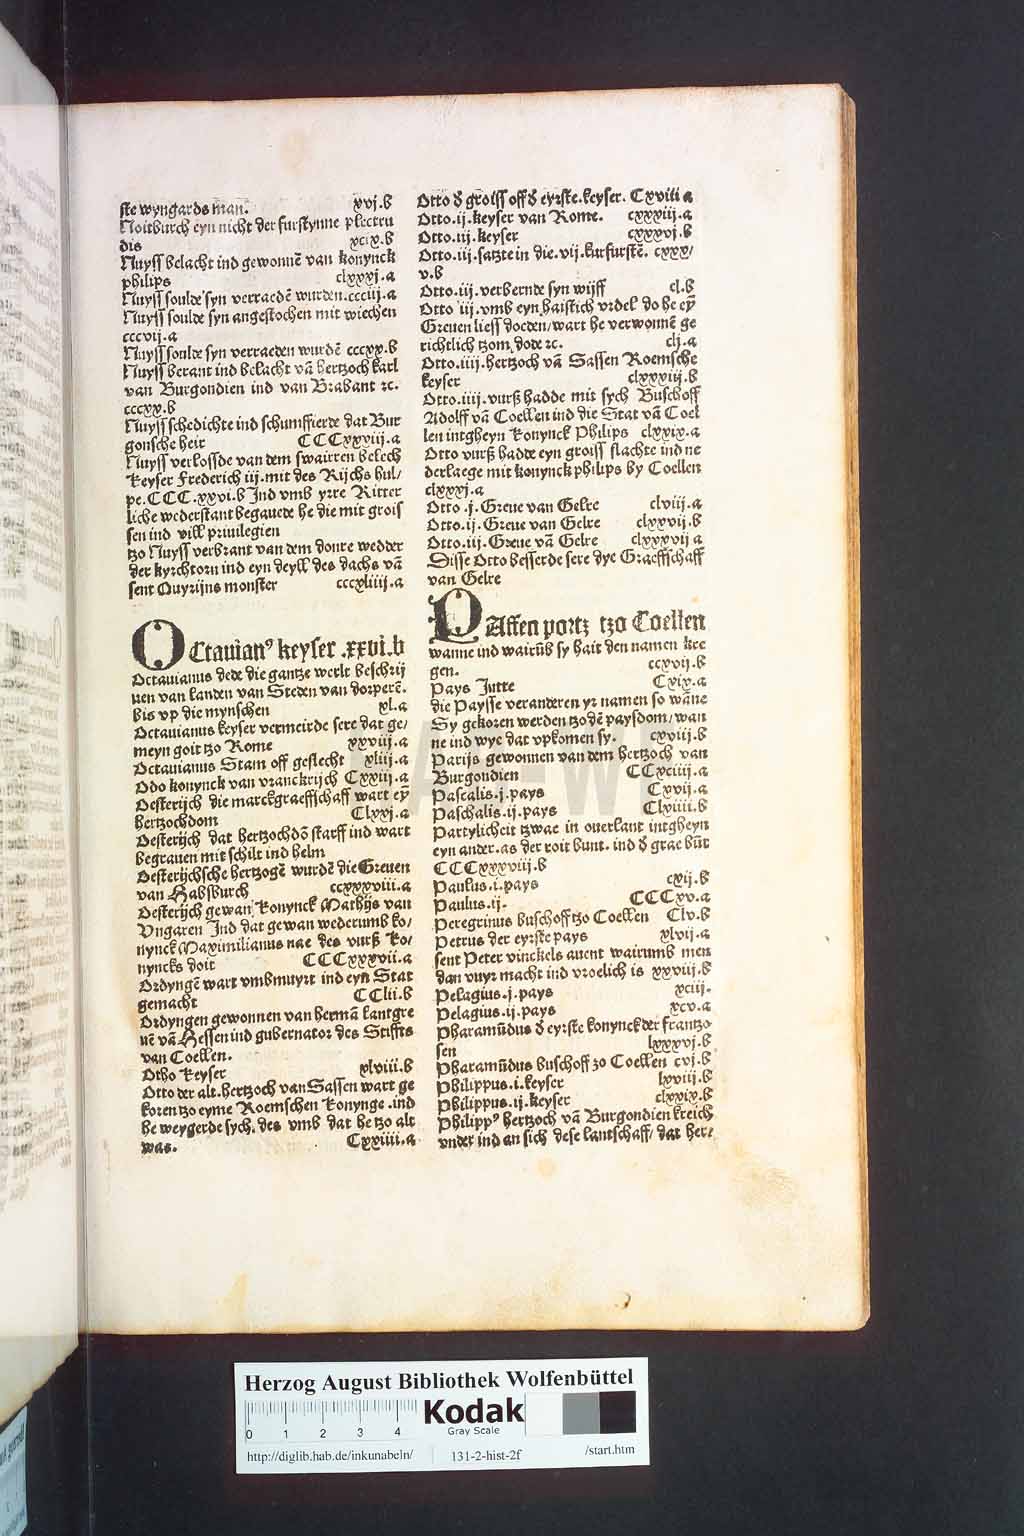 ste wyngards man. xvj.b
Noitburch eyn nicht der furstynne plectru
dis xcix.b
Nuyss belacht ind gewonnē van konynck
philips clxxxj.a
Nuyss soulde syn verraedē wurden.ccciij.a
Nuyss soulde syn angestochen mit wiechen
cccvij.a
Nuyss soulde syn verraeden wurdē cccxx.b
Nuyss berant ind belacht vā hertzoch karl
van Burgondien ind van Brabant ꝛc.
cccxx.b
Nuyss schedichte ind schumffierde dat Bur
gonsche heir CCCxxiij.a
Nuyss verlossde van dem swairren belech
Keyser Frederich iij.mit des Rijchs hul/
pe.CCC.xxvi.b Ind vmb yrre Ritter
liche wederstant begauede he die mit grois
sen ind vill priuilegien
tzo Nuyss verbrant van dem donre wedder
der kyrchtorn ind eyn deyll des dachs vā
sent Quyrijns monster cccxliiij.a
OCtauianꝰ keyser .xxvi.b
Octauianus dede die gantze werlt beschrij
uen van landen van Steden van dorperē.
bis vp die mynschen xl.a
Octauianus keyser vermeirde sere dat ge/
meyn goit tzo Rome xxviij.a
Octauianus Stam off geslecht xliij.a
Odo konynck van vranckrijch Cxxiij.a
Oesterijch die marckgraeffschaff wart eyn̄
hertzochdom Clxxj.a
Oesterijch dat hertzochdō starff ind wart
begrauen mit schilt ind helm
Oesterijchsche hertzogē wurdē die Greuen
van Habsburch ccxxxviii.a
Oesterijch gewan Konynck Mathijs van
Vngaren Ind dat gewan wederumb ko/
nynck Maximilianus nae des vurß Ko/
nyncks doit CCCxxxvii.a
Ordyngē wart vmbmuyrt ind eyn Stat
gemacht CClii.b
Ordyngen gewonnen van hermā lantgre
uē vā Hessen ind gubernator des Stiffts
van Coellen.
Otho Keyser xlviii.b
Otto der alt.hertzoch van Sassen wart ge
koren tzo eyme Roemschen Konynge .ind
he weygerde sych. des vmb dat he tzo alt
was. Cxxiiii.a
Otto d' groiss off d' eyrste.keyser. Cxviii a
Otto.ij.keyser van Rome. cxxxiij.a
Otto.iij.keyser cxxxvj.b
Otto.iij.satzte in die.vij.kurfurstē. cxxx/
v.b
Otto.iij.verbernde syn wijff cl.b
Otto iij.vmb eyn haistich vrdel do he eȳ
Greuen liess doeden/wart he verwonnē ge
richtlich tzom dode ꝛc. clj.a
Otto.iiij.hertzoch vā Sassen Roemsche
keyser clxxxiij.b
Otto.iiij.vurß hadde mit sych Buschoff
Adolff vā Coellen ind die Stat vā Coel
len intgheyn Konynck Philips clxxix.a
Otto vurß hadde eyn groiss slachte ind ne
derlaege mit konynck philips by Coellen
clxxxj.a
Otto .j.Greue van Gelre clviii.a
Otto.ij.Greue van Gelre clxxvij.b
Otto.iij.Greue vā Gelre clxxxvij a
Disse Otto besserde sere dye Graeffschaff
van Gelre
PAffen portz tzo Coellen
wanne ind wairūb sy hait den namen kre
gen. ccxvij.b
Pays Jutte Cxix.a
die Paysse veranderen yr namen so wāne
Sy gekoren werden tzo dē paysdom/wan
ne ind wye dat vpkomen sy. cxviij.b
Parijs gewonnen van dem hertzoch van
Burgondien CCxciiij.a
Pascalis.j.pays Cxvij.a
Paschalis.ij.pays Clxiiii.b
Partylicheit tzwae in ouerlant intgheyn
eyn ander.as der roit bunt. ind d' grae būt
CCCxxxviij.b
Paulus.i.pays cxij.b
Paulus.ij. CCCxv.a
Peregrinus buschoff tzo Coellen Clv.b
Petrus der eyrste pays xlvij.a
sent Peter vinckels auent wairumb men
dan vuyr macht ind vroelich is xxviij.b
Pelagius.j.pays xciij.
Pelagius.ij.pays xcv.a
Pharamūdus d' eyrste konynck der Frantzo
sen lxxxvj.b
Pharamūdus buschoff zo Coellen cvj.b
Philippus.i.keyser lxviij.b
Philippus.ij.keyser clxxix.b
Philippꝰ hertzoch vā Burgondien kreich
vnder ind an sich dese lantschaff/ dat her/
Herzog August Bibliothek Wolfenbüttel
0 1 2 3 4
Kodak
Gray Scale
http://diglib.hab.de/inkunabeln/ 131-2-hist-2f /start.htm